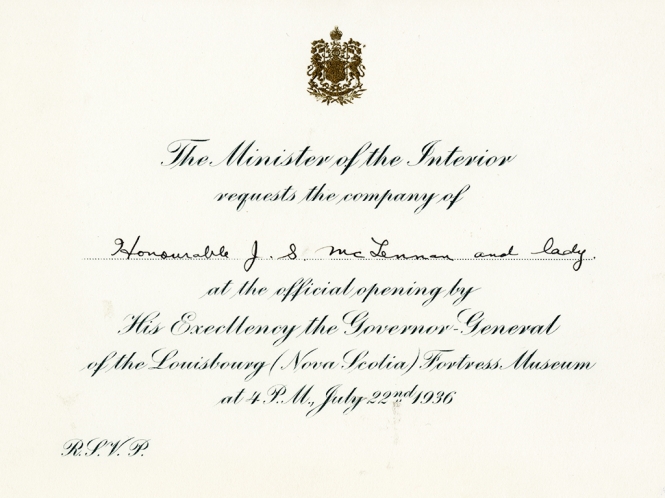 The Minister of the Interior
requests the company of
Honourable J. S. McLennan and lady.
at the official opening by
His Execllency the Governor-General
of the Louisbourg (Nova Scotia) Fortress Museum
at 4 P.M., July 22nd 1936
R.S.V.P.